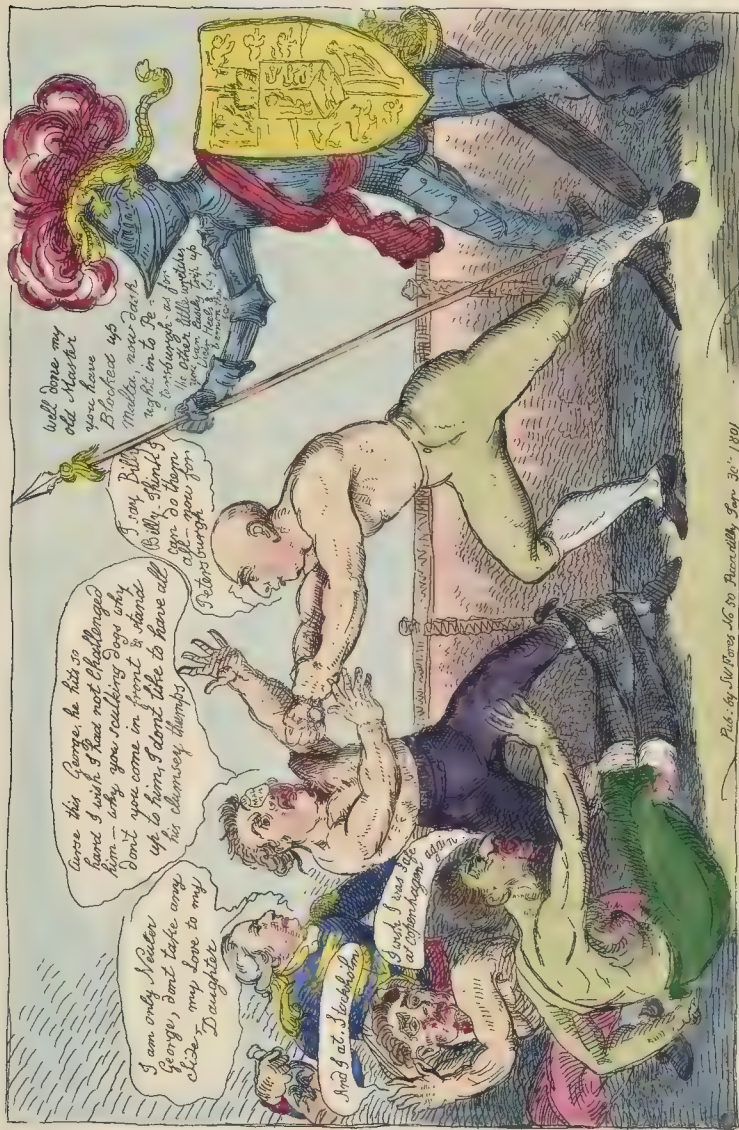 I am only Neuter
George, dont take any
chide - my Love to my
Daughter
And I at Stockholm
I wish I was safe
at Copenhagen again
Curse this George, he hits so
hard I wish I had not challenged
him - why you sculking dogs why
don't you come in front & stand
up to him, I don't like to have all
his clumsey thumps
I say Billy
Billy I think I
can do them
all - you for
Petersburgh
Well done my
old Master
you have
Blocked up
Malta, now dash
right in to Pe-
tersburgh - as for
the other little wretches
you can easily trip up
their heels &
Pub: by SW Fores No 50 Piccadilly Jan 30th 1801